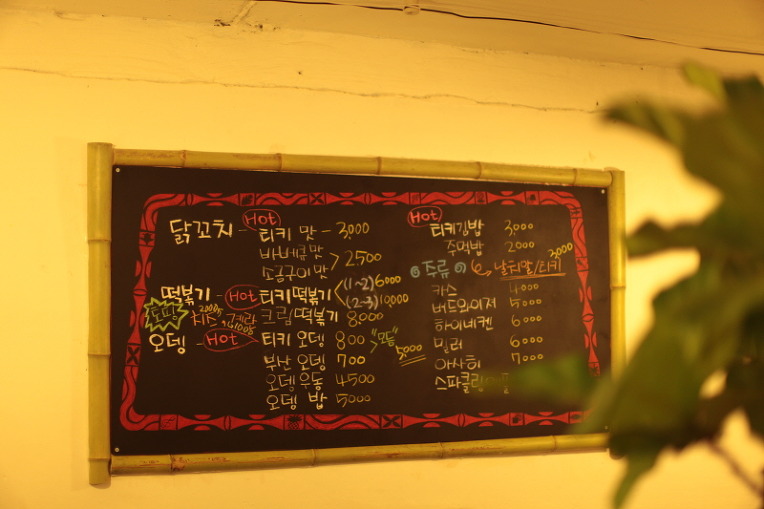 닭꼬치 - Hot 티키 맛 - 3,000
바베큐 맛
소금구이 맛 > 2500
떡볶기 - Hot 티키떡볶기 < (1~2) 6000
(2~3) 10,000
토핑 치즈 2000, 계란
크림떡볶기 8,000
오뎅 - Hot 티키 오뎅 800 > "모듬" 5,000
부산 오뎅 700
오뎅우동 4500
오뎅 밥 5,000
Hot 티키김밥 3,000
주먹밥 2,000
주류 날치알/티키 3,000
카스 4,000
버드와이저 5,000
하이네켄 6,000
밀러 6,000
아사히 7,000
스파클링